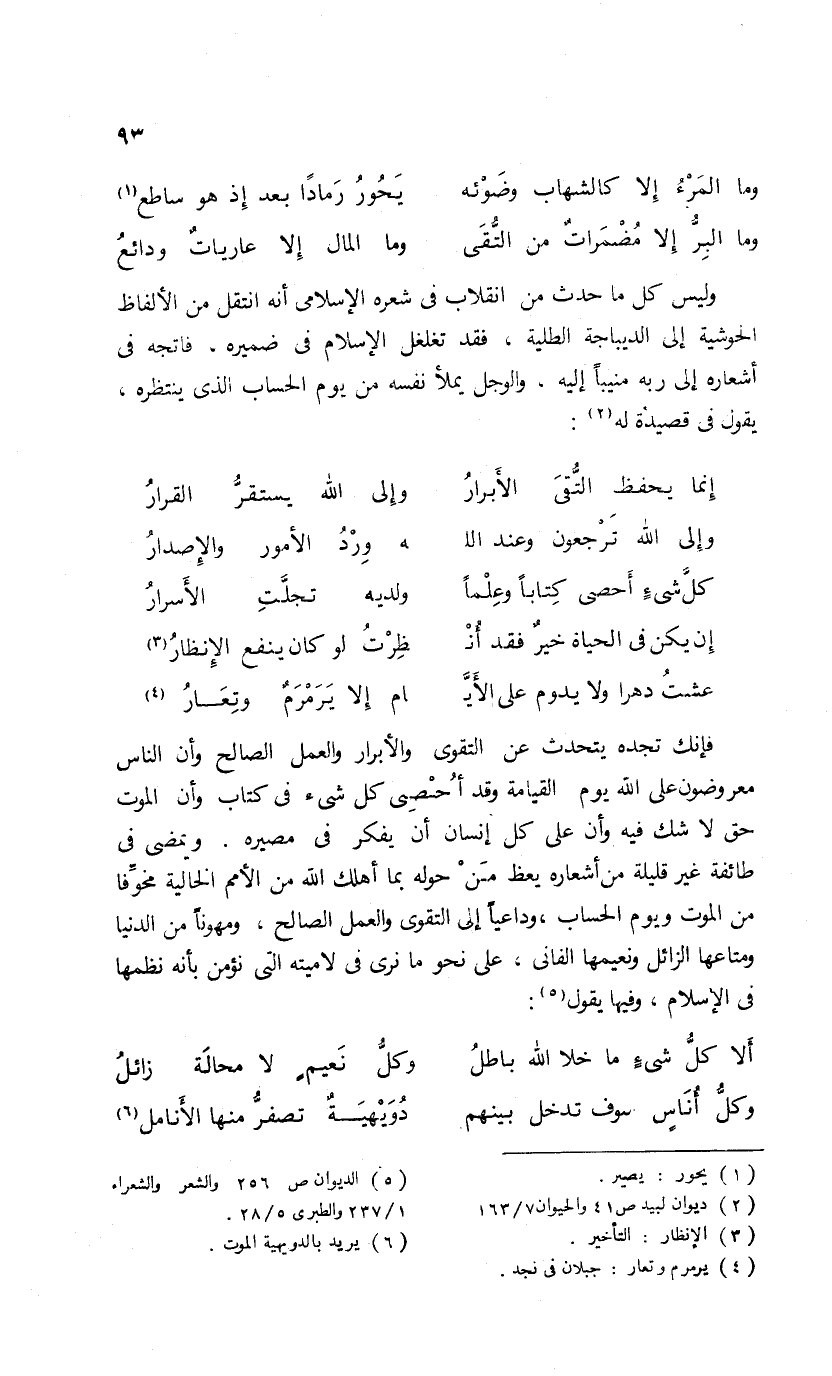 ٩٣
وما المَرْءُ إلا كالشهاب وضَوْئه يَحُورُ رَمادًا بعد إذ هو ساطع(١)
وما البِرُّ إلا مُضْمَراتٌ من التُّقَى وما المال إلا عارياتٌ ودائعُ
وليس كل ما حدث من انقلاب فى شعره الإسلامى أنه انتقل من الألفاظ
الحوشية إلى الديباجة الطلية ، فقد تغلغل الإسلام فى ضميره . فاتجه فى
أشعاره إلى ربه منيباً إليه . والوجل يملأ نفسه من يوم الحساب الذى ينتظره ،
يقول فى قصيدة له(٢) :
إنما يحفظ التُّقَى الأَبرارُ وإلى الله يستقرُّ القرارُ
وإلى الله تَرْجعون وعند اللـ ـه وِرْدُ الأمور والإِصدارُ
كلَّ شىءٍ أَحصى كِتاباً وعِلْماً ولديه تجلَّتِ الأَسرارُ
إن يكن فى الحياة خيرٌ فقد أُنْـ ـظِرْتُ لو كان ينفع الإنظارُ(٣)
عشتُ دهرا ولا يدوم على الأَيَّـ ـام إلا يَرَمْرَمٌ وتِعَــارُ (٤)
فإنك تجده يتحدث عن التقوى والأبرار والعمل الصالح وأن الناس
معروضون على الله يوم القيامة وقد أُحْصِى كل شىء فى كتاب وأن الموت
حق لا شك فيه وأن على كل إنسان أن يفكر فى مصيره . ويمضى فى
طائفة غير قليلة من أشعاره يعظ مَنْ حوله بما أهلك الله من الأمم الخالية مخوِّفا
من الموت ويوم الحساب ،وداعياً إلى التقوى والعمل الصالح ، ومهوناً من الدنيا
ومتاعها الزائل ونعيمها الفانى ، على نحو ما نرى فى لاميته التى نؤمن بأنه نظمها
فى الإسلام ، وفيها يقول(٥) :
أَلا كلُّ شىءٍ ما خلا الله باطلُ وكلُّ نَعيمٍ لا محالَة زائلُ
وكلُّ أُنَاسٍ سوف تدخل بينهم دُوَيْهِيَــةٌ تصفرُّ منها الأَنامل(٦)
(١) يحور : يصير .
(٢) ديوان لبيد ص٤١ والحيوان٧/ ١٦٣
(٣) الإنظار : التأخير .
(٤) يرمرم وتعار : جبلان فى نجد .
(٥) الديوان ص ٢٥٦ والشعر والشعراء
١/ ٢٣٧ والطبرى ٥/ ٢٨ .
(٦) يريد بالدويهية الموت .